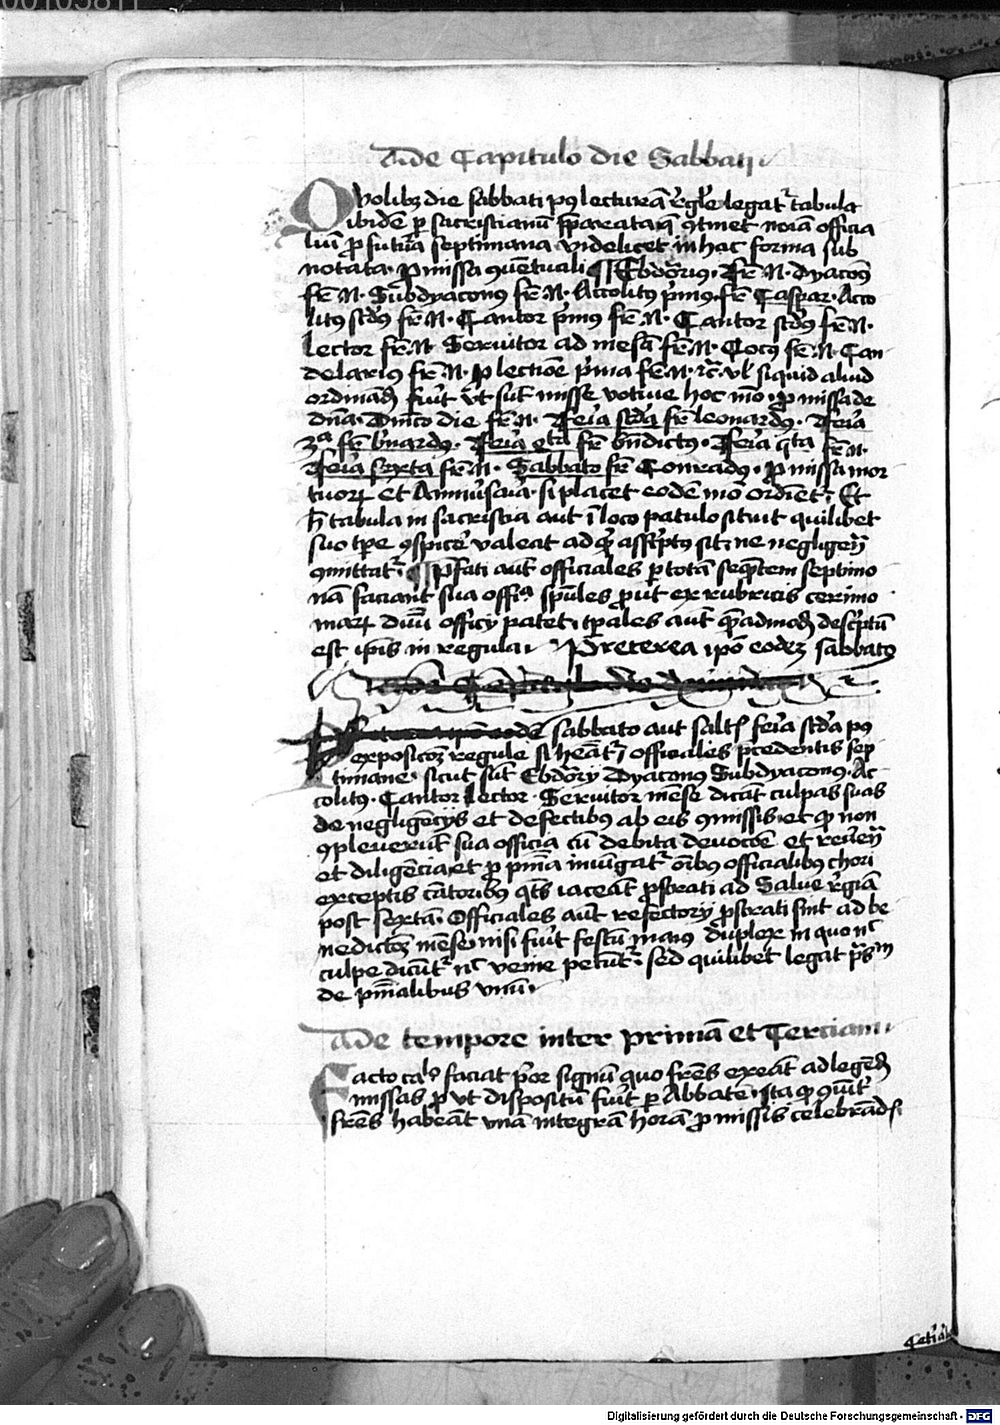 00105811
De Capitulo die Sabbati
Quolibꝫ die sabbati pꝰ lecturā rēgle legat᷑ tabula
ibidē ꝑ sacristianū ꝑparata q̄ ɔtinet noīa officia
liū ꝓ futura septimana videlicet in hac forma sub
notata. Pro missa ɔuētuali ¶ Ebdōrius. Fr̄ N. Dyacoꝰ
fr̄ N. Subdyaconus fr̄ N. Accolitꝰ p̄mꝰ fr̄ Caspar. Acco
litꝰ scd̄s fr̄ N. Cantor p̄mꝰ fr̄ N. Cantor scd̄s fr̄ N.
Lector fr̄ N. Seruitor ad mesā fr̄ N. Cocꝰ fr̄ N. Can
delariꝰ fr̄ N. Pro lectiōe p̄ma fr̄ N. rc̄ vl̓ siquid aliud
ordinādū fuīt vt sūt misse votiue hoc mō. Pro missa de
dn̄a. Dn̄ico die fr̄ N. Feīa scd̄a fr̄ leonardꝰ. Feīa
3ᵃ fr̄ b̄nardꝰ. Feīa qͬta fr̄ bn̄dictꝰ. Feīa q̄ta fr̄ N.
Feīa sexta fr̄ N. Sabbato fr̄ Conradꝰ. Pro missa mor
tuoꝝ et Anniūsaria. si placet eodē mō ordiēt᷑. Et
h̄ tabula in sacristia aut ī loco patulo situīt quilibet
suo tp̄e ɔspicē valeat ad qͥd asscͥptꝰ sit. ne negligeñ
ɔmittat᷑. ¶ P̄fati aūt officiales ꝑ totā seqn̄tem septimo
nā faciant sua offiᵃ spūales ꝓut ex rubricis cerimo
niaꝝ diuī officij patet. tp̄ales aūt q̄madmodū descͥptū
est ip̄is in regula. Preterea ip̄o eodeꝫ sabbato
sabbato aut saltē feīa scd̄a pꝰ
exposicōꝫ regule si hēāt᷑ officiales p̄cedentis sep
timane. sicut sūt Ebdōrij Dyaconꝰ Subdyaconꝰ. Ac
colitꝰ. Cantor Lector. Seruitor mēse dicāt culpas suas
de negligēcijs et defectibꝰ ab eis ɔmissis. et qꝫ non
ɔpleuerūt sua officia cū debita deuocōe et reuēn̄
et diligēcia. et ꝓ pn̄ia iniūgat᷑ oībꝰ officialibꝰ chori
exceptis cātoribꝰ qͭs iaceāt ꝓstrati ad Salue rēgiā
post sextā. Officiales aūt refectorij ꝓstrati sint ad be
nedictōꝫ mēse. nisi fuīt festū maiꝰ duplex in quo nͨ
culpe dicūt᷑ nͨ venie petūt᷑. sed quilibet legat psͫ
de pn̄ialibus vnū.
De tempore inter primā et Terciam
Facto caᵒ faciat p̄or signū quo frēs exeāt ad legēdū
missas ꝓ vt dispositū fuīt ꝑ Abbatē. ita qꝫ ɔuēt᷑
frēs habeāt vnā integrā horā ꝓ missis celebrād̄
Digitalisierung gefördert durch die Deutsche Forschungsgemeinschaft - DFG